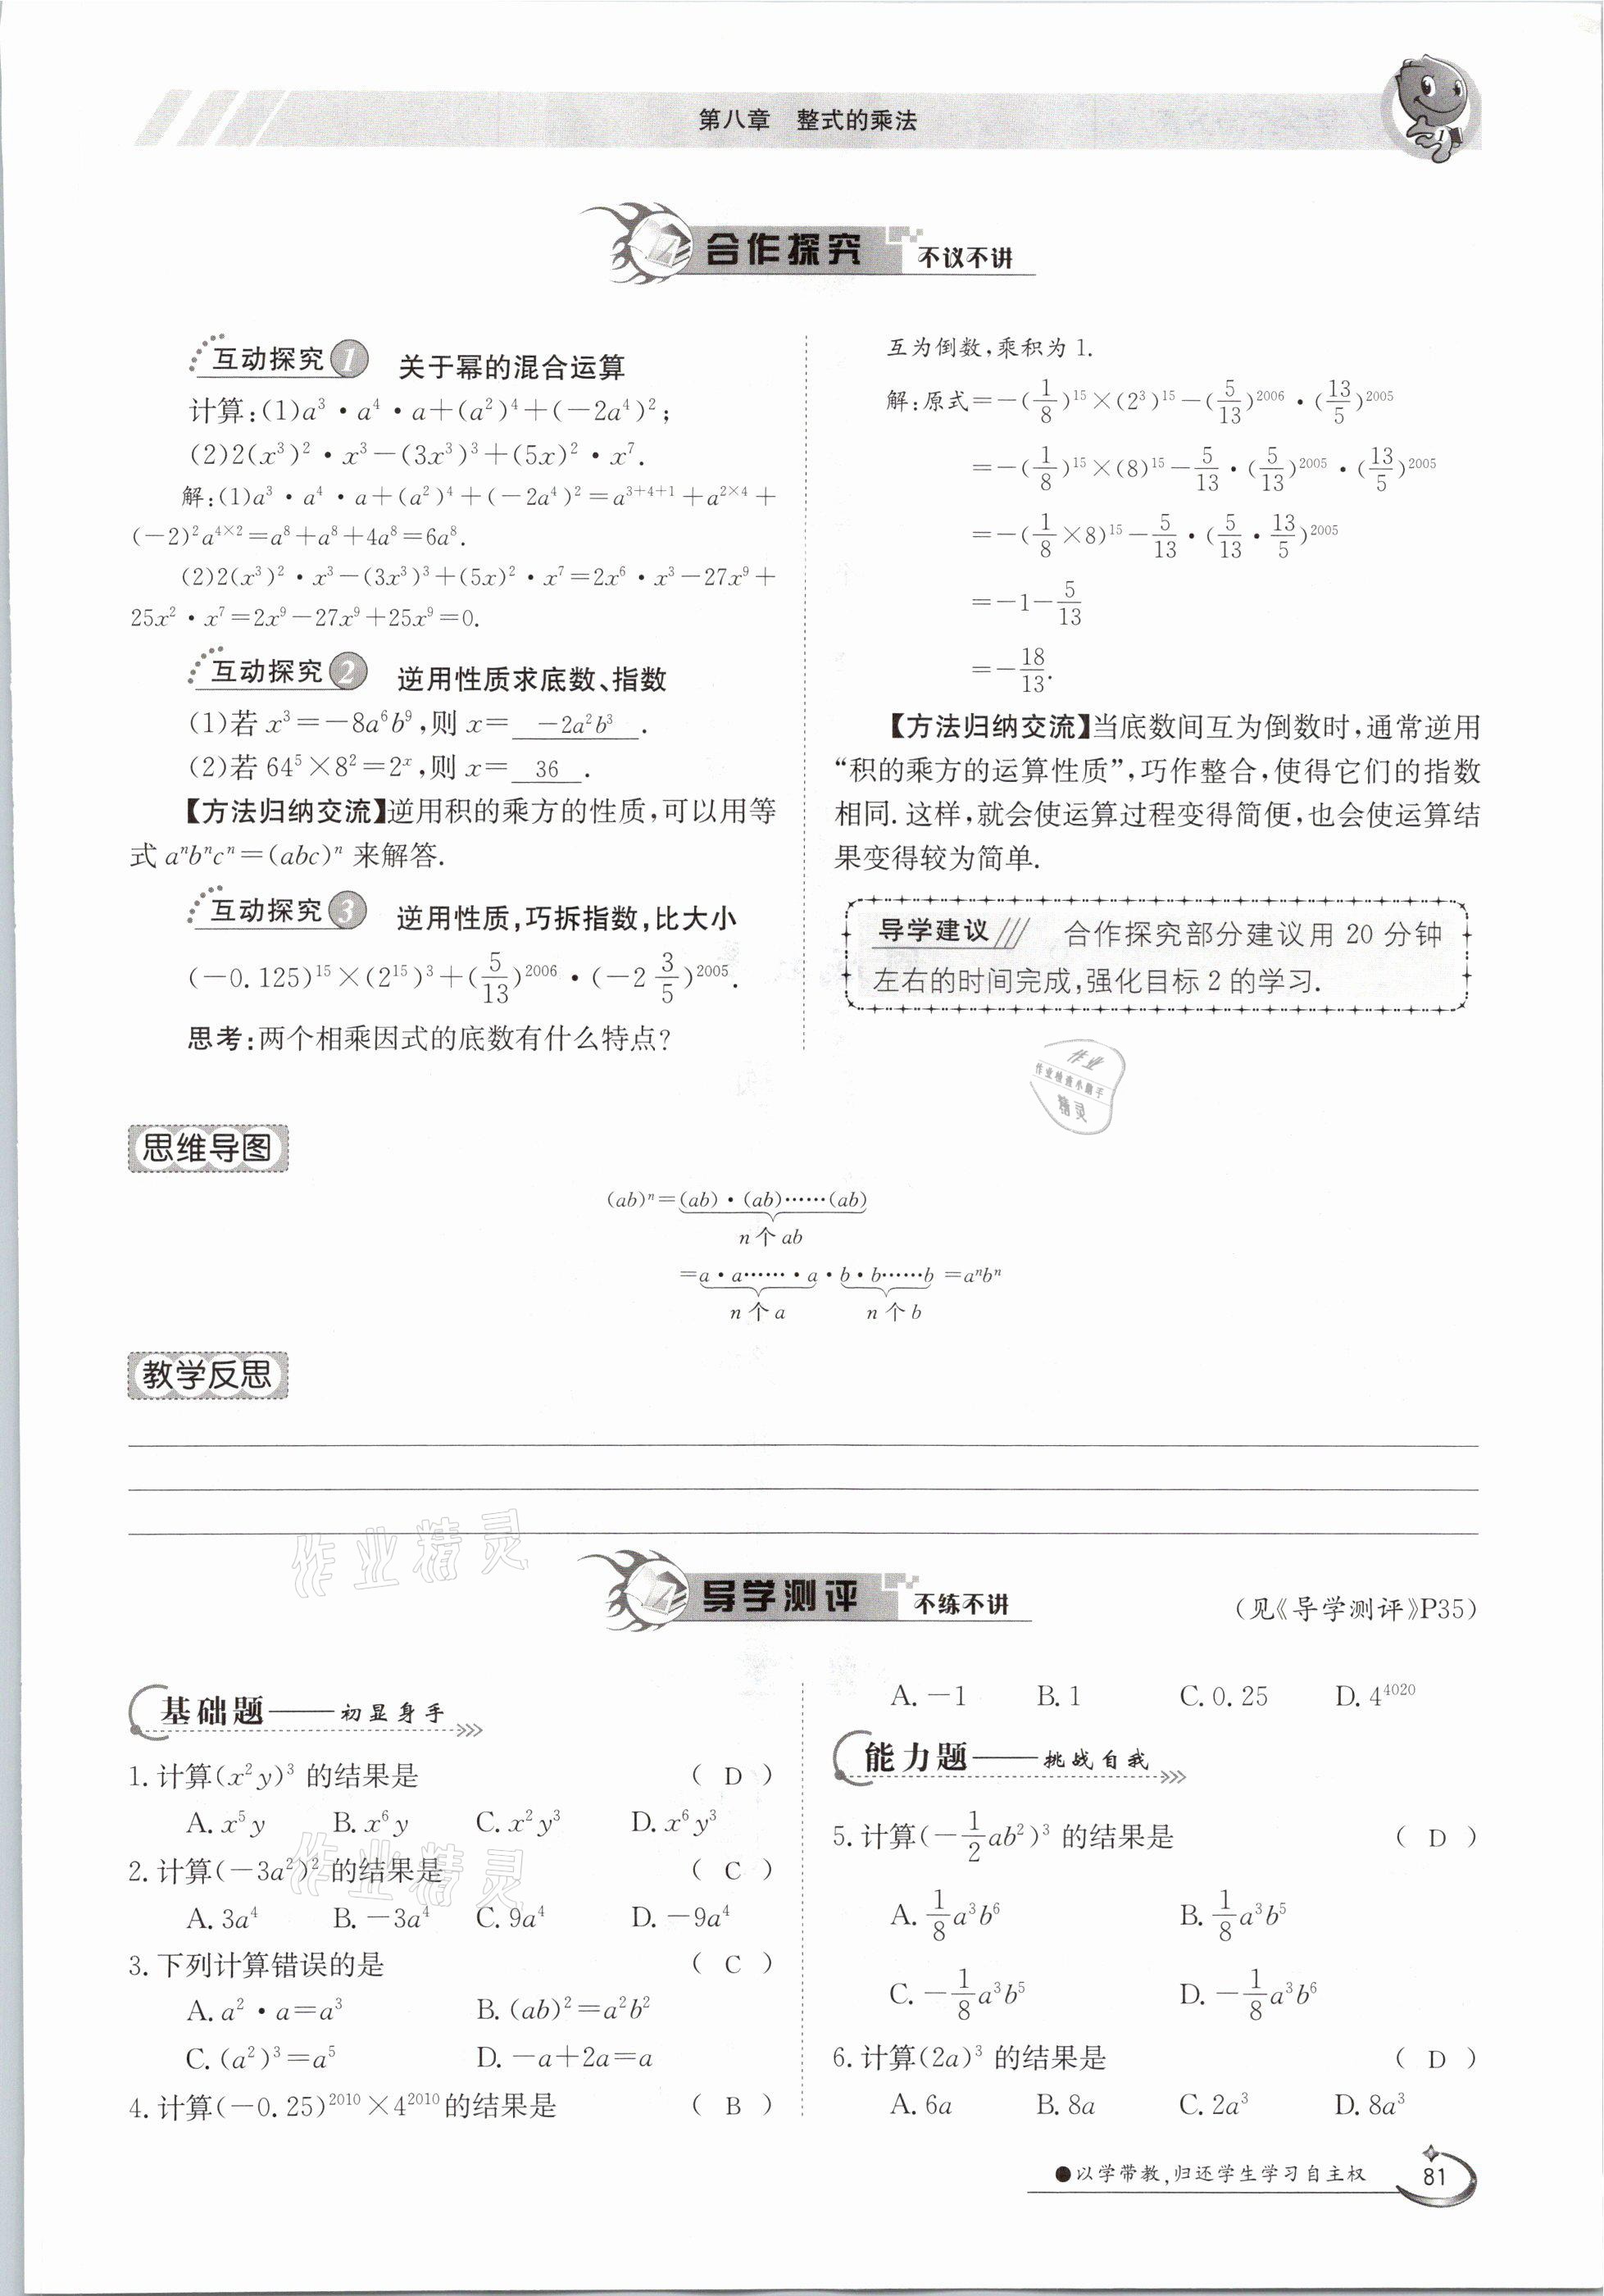 第八章　整式的乘法
合作探究　不议不讲
互动探究1　关于幂的混合运算
计算:(1)a³·a⁴·a+(a²)⁴+(-2a⁴)²;
(2)2(x³)²·x³-(3x³)³+(5x)²·x⁷.
解:(1)a³·a⁴·a+(a²)⁴+(-2a⁴)²=a³⁺⁴⁺¹+a²ˣ⁴+
(-2)²a⁴ˣ²=a⁸+a⁸+4a⁸=6a⁸.
(2)2(x³)²·x³-(3x³)³+(5x)²·x⁷=2x⁶·x³-27x⁹+
25x²·x⁷=2x⁹-27x⁹+25x⁹=0.
互动探究2　逆用性质求底数、指数
(1)若 x³=-8a⁶b⁹,则 x= -2a²b³ .
(2)若 64⁵×8²=2ˣ,则 x= 36 .
【方法归纳交流】逆用积的乘方的性质,可以用等
式 aⁿbⁿcⁿ=(abc)ⁿ 来解答.
互动探究3　逆用性质,巧拆指数,比大小
(-0.125)¹⁵×(2¹⁵)³+(5/13)²⁰⁰⁶·(-2 3/5)²⁰⁰⁵.
思考:两个相乘因式的底数有什么特点?
互为倒数,乘积为 1.
解:原式=-(1/8)¹⁵×(2³)¹⁵-(5/13)²⁰⁰⁶·(13/5)²⁰⁰⁵
=-(1/8)¹⁵×(8)¹⁵-5/13·(5/13)²⁰⁰⁵·(13/5)²⁰⁰⁵
=-(1/8×8)¹⁵-5/13·(5/13·13/5)²⁰⁰⁵
=-1-5/13
=-18/13.
【方法归纳交流】当底数间互为倒数时,通常逆用
“积的乘方的运算性质”,巧作整合,使得它们的指数
相同.这样,就会使运算过程变得简便,也会使运算结
果变得较为简单.
导学建议　合作探究部分建议用 20 分钟
左右的时间完成,强化目标 2 的学习.
作业
作业检查小助手
精灵
思维导图
(ab)ⁿ=(ab)·(ab)……(ab)
n 个 ab
=a·a……·a·b·b……b =aⁿbⁿ
n 个 a　n 个 b
教学反思
作业精灵
导学测评　不练不讲　(见《导学测评》P35)
基础题——初显身手
1.计算(x²y)³ 的结果是　( D )
A.x⁵y　B.x⁶y　C.x²y³　D.x⁶y³
2.计算(-3a²)² 的结果是　( C )
作业精灵
A.3a⁴　B.-3a⁴　C.9a⁴　D.-9a⁴
3.下列计算错误的是　( C )
A.a²·a=a³　B.(ab)²=a²b²
C.(a²)³=a⁵　D.-a+2a=a
4.计算(-0.25)²⁰¹⁰×4²⁰¹⁰的结果是　( B )
A.-1　B.1　C.0.25　D.4⁴⁰²⁰
能力题——挑战自我
5.计算(-1/2ab²)³ 的结果是　( D )
A.1/8a³b⁶　B.1/8a³b⁵
C.-1/8a³b⁵　D.-1/8a³b⁶
6.计算(2a)³ 的结果是　( D )
A.6a　B.8a　C.2a³　D.8a³
●以学带教,归还学生学习自主权　81